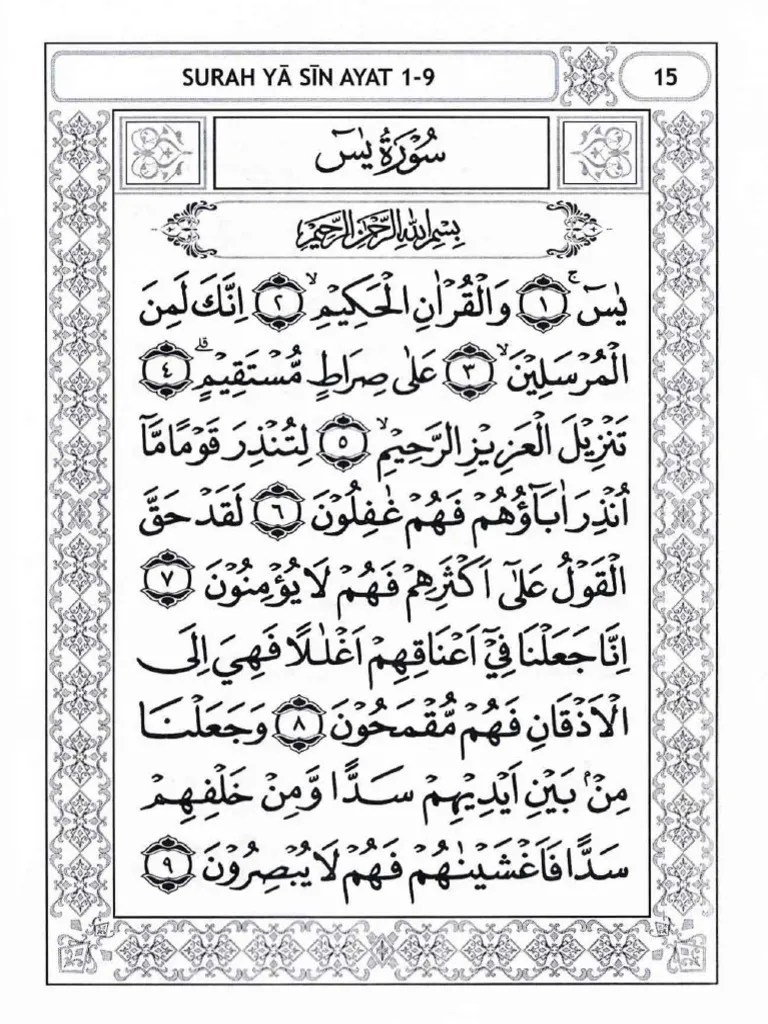 SURAH YĀ SĪN AYAT 1-9
15
سُوْرَةُ يٰسٓ
بِسْمِ اللّٰهِ الرَّحْمٰنِ الرَّحِيْمِ
يٰسٓ ۚ ﴿١﴾ وَالْقُرْاٰنِ الْحَكِيْمِۙ ﴿٢﴾ اِنَّكَ لَمِنَ
الْمُرْسَلِيْنَۙ ﴿٣﴾ عَلٰى صِرَاطٍ مُّسْتَقِيْمٍۗ ﴿٤﴾
تَنْزِيْلَ الْعَزِيْزِ الرَّحِيْمِۙ ﴿٥﴾ لِتُنْذِرَ قَوْمًا مَّآ
اُنْذِرَ اٰبَاۤؤُهُمْ فَهُمْ غٰفِلُوْنَ ﴿٦﴾ لَقَدْ حَقَّ
الْقَوْلُ عَلٰٓى اَكْثَرِهِمْ فَهُمْ لَا يُؤْمِنُوْنَ ﴿٧﴾
اِنَّا جَعَلْنَا فِيْٓ اَعْنَاقِهِمْ اَغْلٰلًا فَهِيَ اِلَى
الْاَذْقَانِ فَهُمْ مُّقْمَحُوْنَ ﴿٨﴾ وَجَعَلْنَا
مِنْۢ بَيْنِ اَيْدِيْهِمْ سَدًّا وَّمِنْ خَلْفِهِمْ
سَدًّا فَاَغْشَيْنٰهُمْ فَهُمْ لَا يُبْصِرُوْنَ ﴿٩﴾